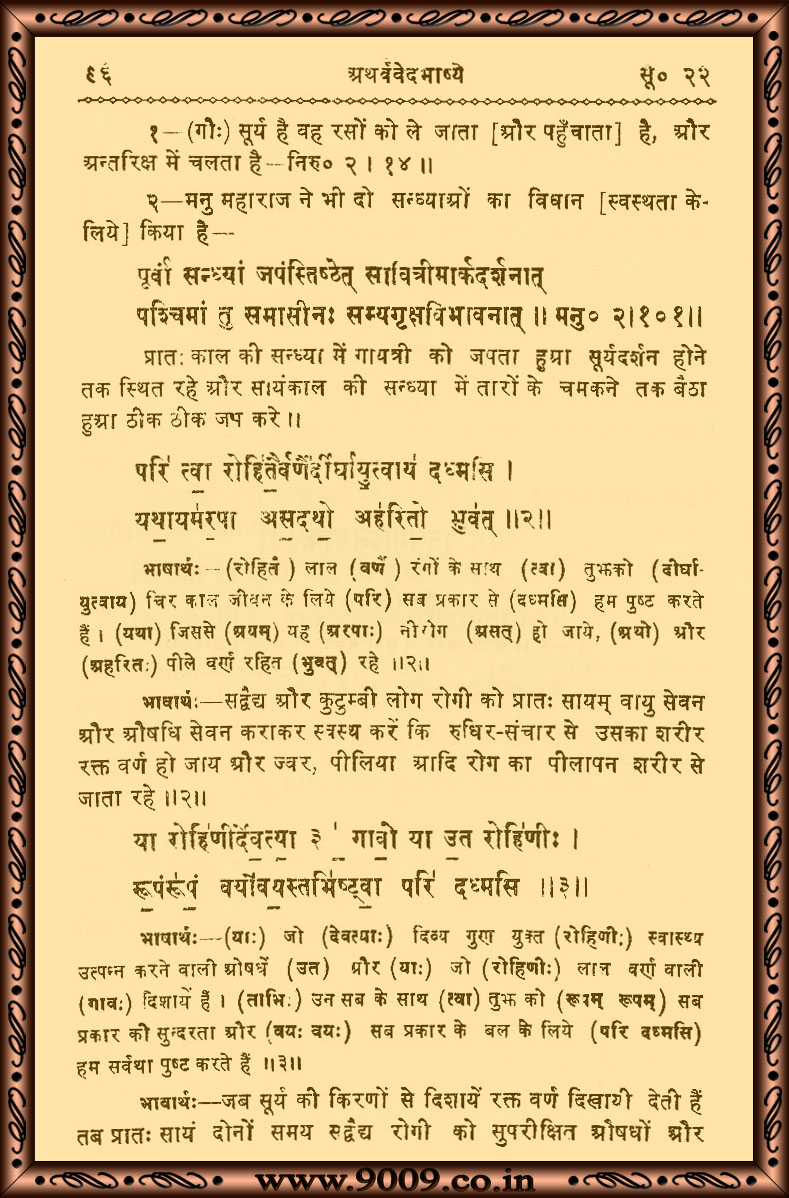 ९६ अथर्ववेदभाष्ये सू० २२
१—(गौः) सूर्य है वह रसों को ले जाता [और पहुँचाता] है, और
अन्तरिक्ष में चलता है—निरु० २ । १४ ॥
२—मनु महाराज ने भी दो सन्ध्याओं का विधान [स्वस्थता के-
लिये] किया है—
पूर्वां सन्ध्यां जपंस्तिष्ठेत् सावित्रीमार्कदर्शनात्
पश्चिमां तु समासीनः सम्यगृक्षविभावनात् ॥ मनु० २।१०१॥
प्रातः काल की सन्ध्या में गायत्री को जपता हुआ सूर्यदर्शन होने
तक स्थित रहे और सायंकाल की सन्ध्या में तारों के चमकने तक बैठा
हुआ ठीक ठीक जप करे ॥
परि॑ त्वा॒ रोहि॑तै॒र्वर्णै॑र्दीर्घायु॒त्वाय॑ दध्मसि ।
यथा॒यम॑र॒पा अस॒दथो॒ अह॑रितो॒ भुव॑त् ॥२॥
भाषार्थः—(रोहितै ) लाल (वर्णै ) रंगों के साथ (त्वा) तुझको (दीर्घा-
युत्वाय) चिर काल जीवन के लिये (परि) सब प्रकार से (दध्मसि) हम पुष्ट करते
हैं । (यथा) जिससे (अयम्) यह (अरपाः) नीरोग (असत्) हो जाये, (अथो) और
(अहरितः) पीले वर्ण रहित (भुवत्) रहे ॥२॥
भावार्थः—सद्वैद्य और कुटुम्बी लोग रोगी को प्रातः सायम् वायु सेवन
और औषधि सेवन कराकर स्वस्थ करें कि रुधिर-संचार से उसका शरीर
रक्त वर्ण हो जाय और ज्वर, पीलिया आदि रोग का पीलापन शरीर से
जाता रहे ॥२॥
या रोहि॑णीर्देव॒त्या॒ ३॒॑ गावो॒ या उ॒त रोहि॑णीः ।
रू॒पंरू॑पं॒ वयो॑वय॒स्ताभि॑ष्ट्वा॒ परि॑ दध्मसि ॥३॥
भाषार्थः—(याः) जो (देवत्याः) दिव्य गुण युक्त (रोहिणीः) स्वास्थ्य
उत्पन्न करने वाली ओषधें (उत) और (याः) जो (रोहिणीः) लाल वर्ण वाली
(गावः) दिशायें हैं । (ताभिः) उन सब के साथ (त्वा) तुझ को (रूपम् रूपम्) सब
प्रकार की सुन्दरता और (वयः वयः) सब प्रकार के बल के लिये (परि दध्मसि)
हम सर्वथा पुष्ट करते हैं ॥३॥
भावार्थः—जब सूर्य की किरणों से दिशायें रक्त वर्ण दिखायी देती हैं
तब प्रातः सायं दोनों समय सद्वैद्य रोगी को सुपरीक्षित औषधों और
www.9009.co.in